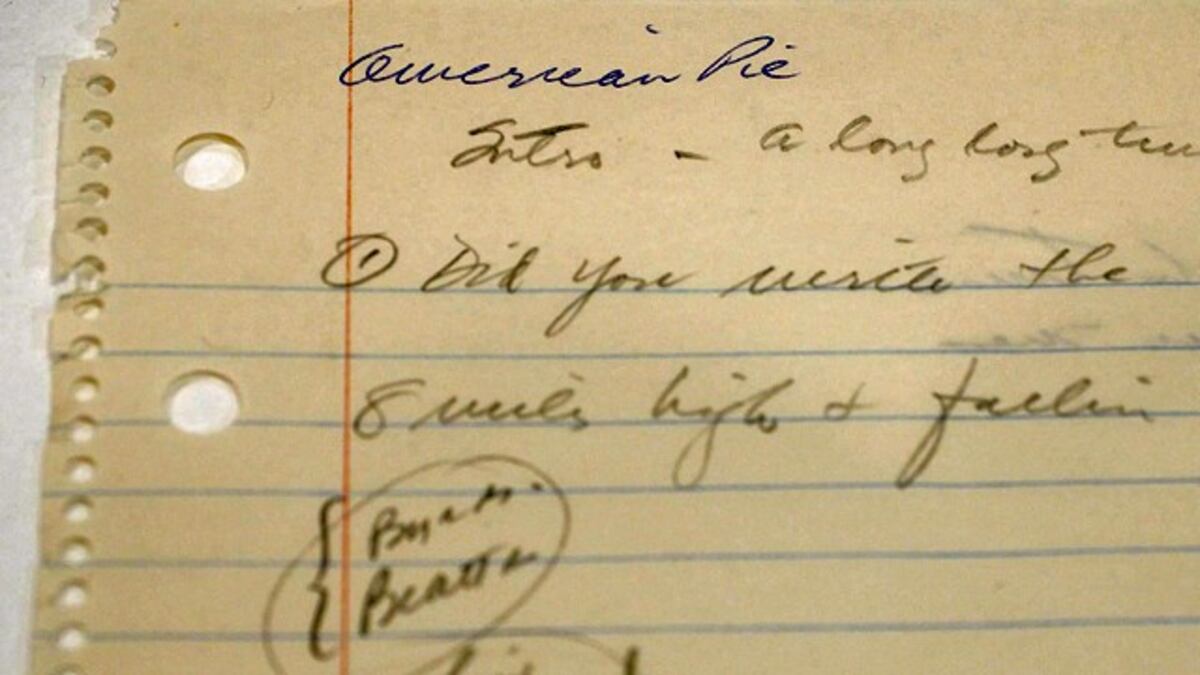 American Pie
Intro - a long long
① Did you write the
8 miles high + fallin